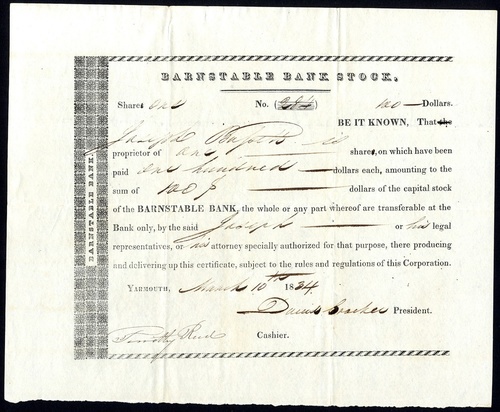 BARNSTABLE BANK STOCK.
Shares one No. 100 Dollars.
BE IT KNOWN, That the
Joseph is
proprietor of one shares, on which have been
paid one hundred dollars each, amounting to the
sum of 100 dollars of the capital stock
of the BARNSTABLE BANK, the whole or any part whereof are transferable at the
Bank only, by the said Joseph or his legal
representatives, or his attorney specially authorized for that purpose, there producing
and delivering up this certificate, subject to the rules and regulations of this Corporation.
YARMOUTH, March 10th 1834
David Crocker President.
Timothy Reed Cashier.
BARNSTABLE BANK.